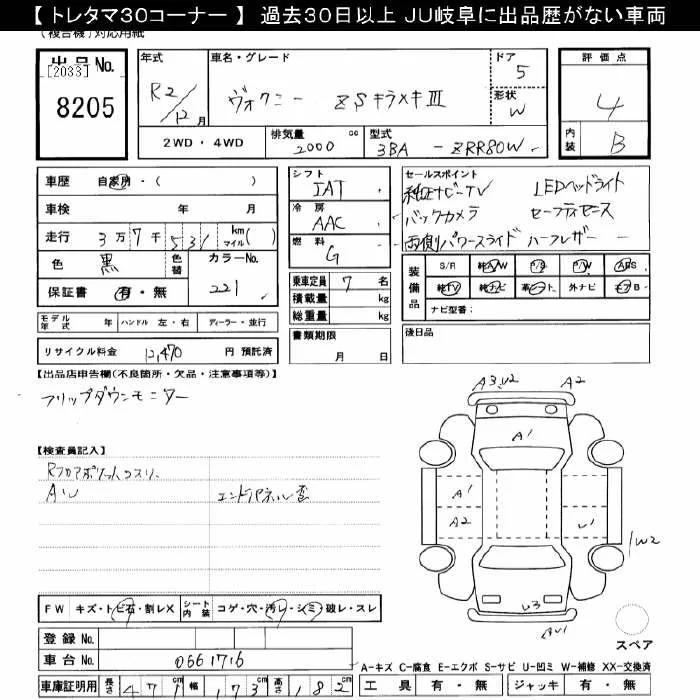 【 トレタマ30コーナー 】 過去30日以上 JU岐阜に出品歴がない車両
(複合機)対応用紙
出品No.
[2033]
8205
年式
R2/12月
車名・グレード
ヴォクシー ZSキラメキⅢ
ドア
5
形状
W
評価点
4
内装
B
2WD・4WD
排気量
2000 cc
型式
3BA - ZRR80W
車歴 自家用・( )
車検 年 月
走行 3万7千531 km マイル( )
色 黒 色替 カラーNo. 221
保証書 有・無
シフト
IAT
冷房
AAC
燃料
G
乗車定員 7 名
積載量 kg
総重量 kg
書類期限
月 日
セールスポイント
純正ナビ-TV LEDヘッドライト
バックカメラ セーフティセンス
両側パワースライド ハーフレザー
装備品
S/R 純A/W P/S P/W ABS
純TV 純ナビ 革シート 外ナビ エアB
ナビ型番:
後日品
モデル年式 年 ハンドル 左・右 ディーラー・並行
リサイクル料金 12,470 円 預託済
【出品店申告欄(不良箇所・欠品・注意事項等)】
フリップダウンモニター
【検査員記入】
AU エンドパネル歪
A3 U2 A2
A1
A1
A2 U1
1W2
U3
AU1
FW キズ・トビ石・割レX シート内装 コゲ・穴・汚レ・シミ・破レ・スレ
スペア
登録No.
車台No. 0661716
A-キズ C-腐食 E-エクボ S-サビ U-凹ミ W-補修 XX-交換済
車庫証明用 長さ 471cm 幅 173cm 高さ 182cm
工具 有・無 ジャッキ 有・無